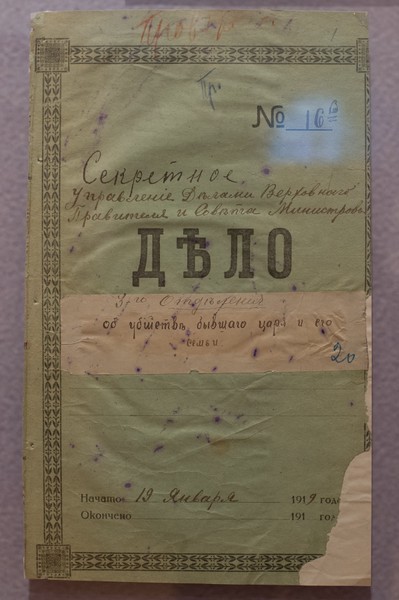 Пр.
№ 16 б
Секретное
Управленіе Дѣлами Верховного
Правителя и Совѣта Министровъ
ДѢЛО
3го Отдѣленія
об убійствѣ бывшаго царя и его
семьи
20
Начато 19 Января 1919 года
Окончено 191 года